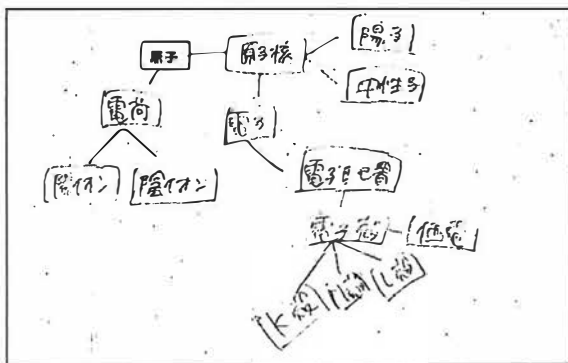 原子
原子核
陽子
中性子
電荷
電子
陽イオン
陰イオン
電子配置
電子殻
価電
K殻
M殻
L殻